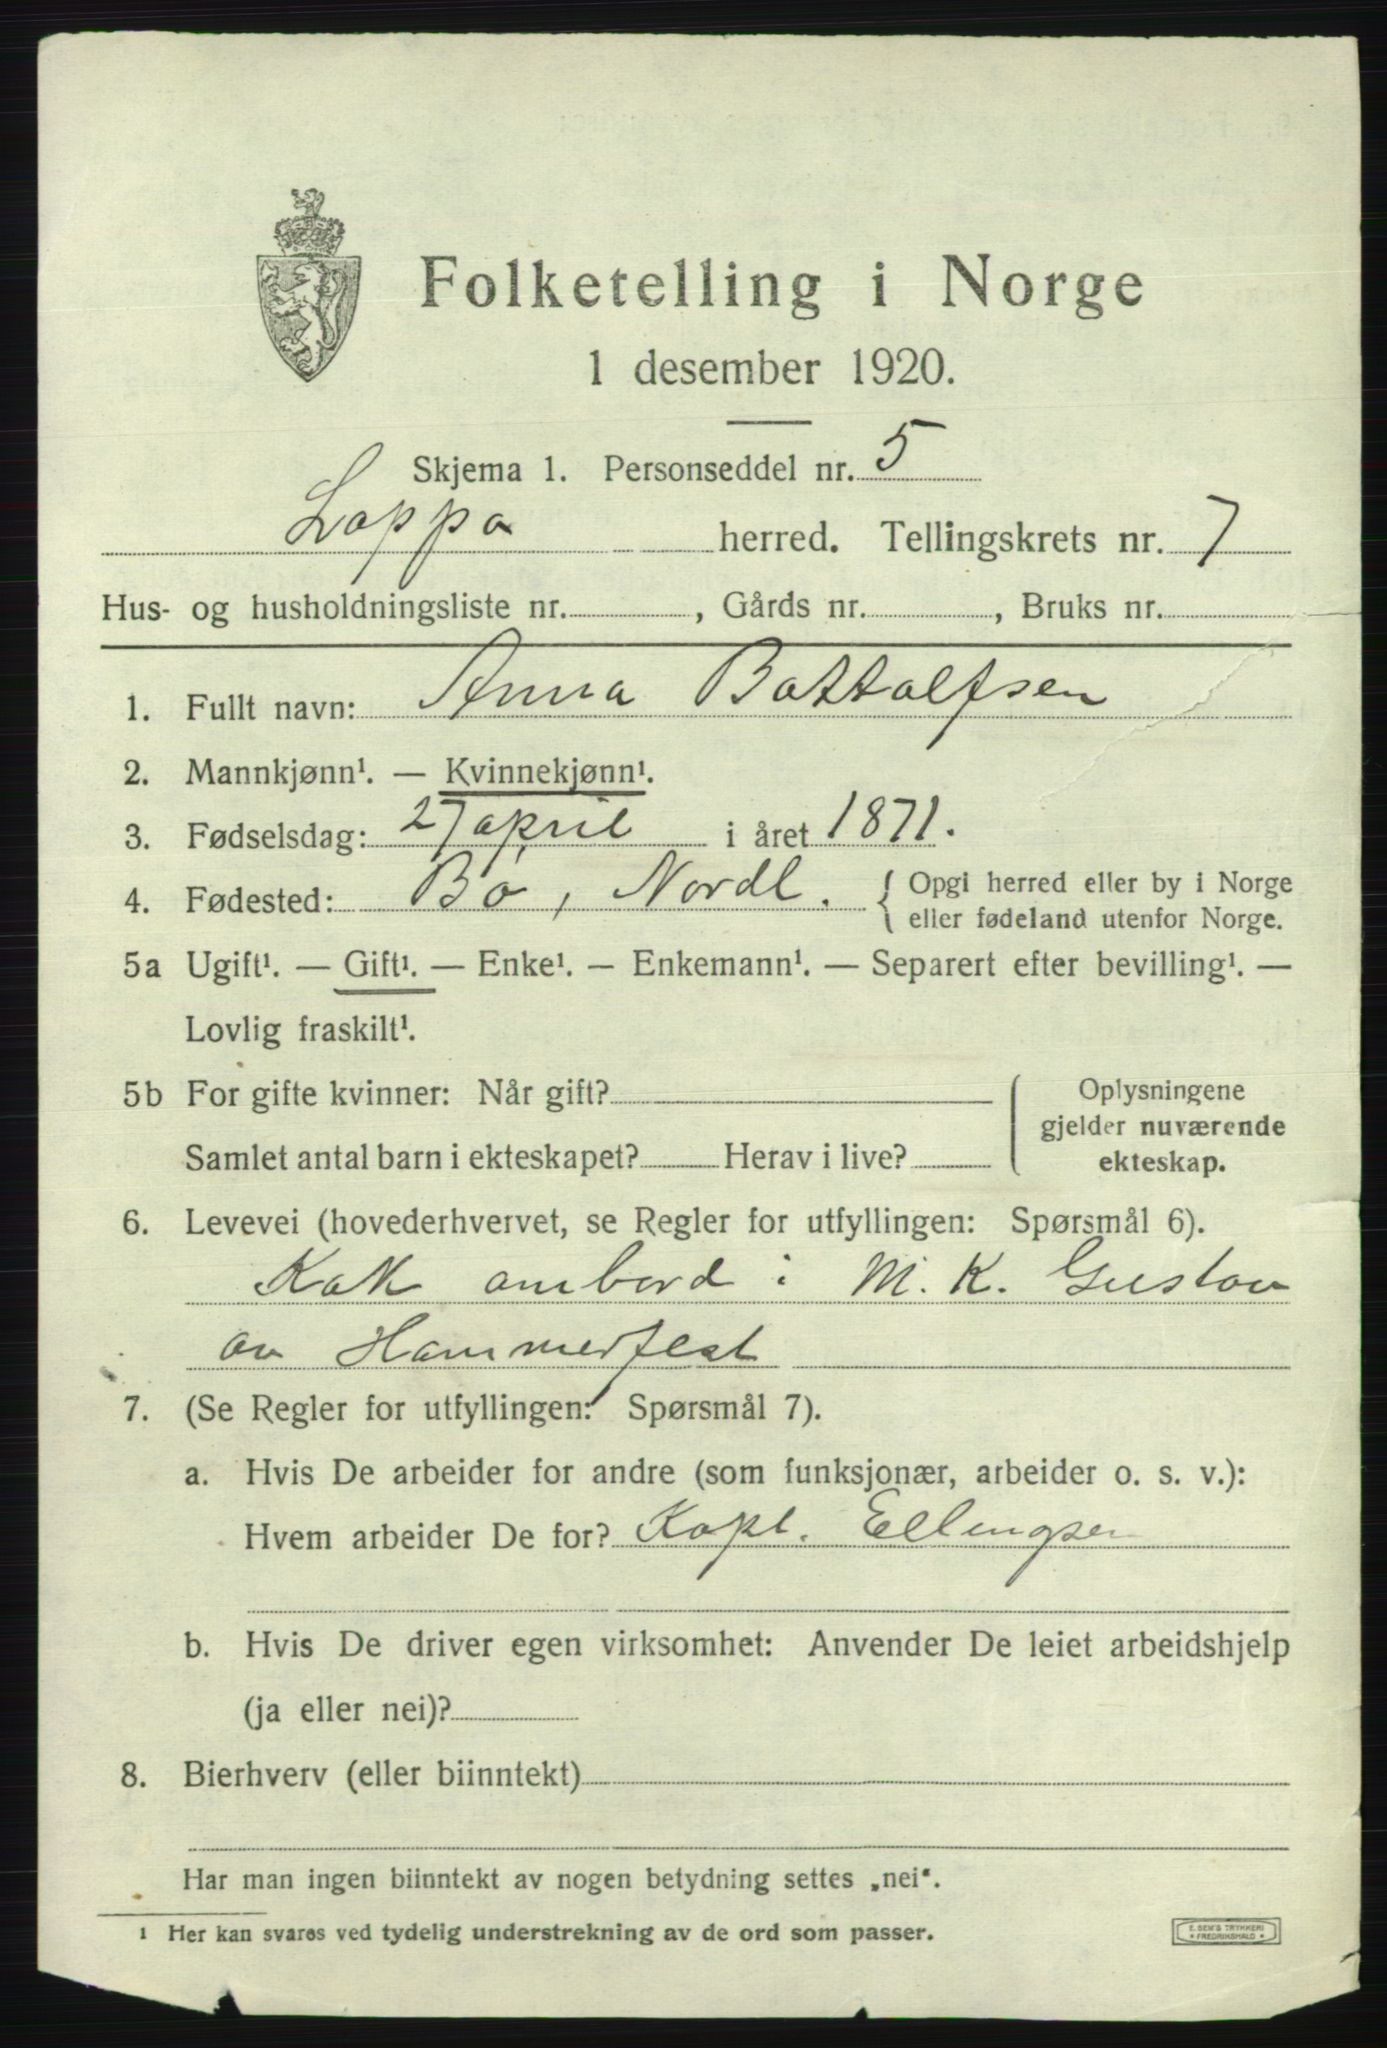 Folketelling i Norge
1 desember 1920.
Skjema 1. Personseddel nr. 5
Loppa herred. Tellingskrets nr. 7
Hus- og husholdningsliste nr. , Gårds nr. , Bruks nr.
1. Fullt navn: Anna Bottolfsen
2. Mannkjønn¹. — Kvinnekjønn¹.
3. Fødselsdag: 27 april i året 1871.
4. Fødested: Bø, Nordl. { Opgi herred eller by i Norge
eller fødeland utenfor Norge.
5a Ugift¹. — Gift¹. — Enke¹. — Enkemann¹. — Separert efter bevilling¹. —
Lovlig fraskilt¹.
5b For gifte kvinner: Når gift? Oplysningene
gjelder nuværende
Samlet antal barn i ekteskapet? Herav i live? ekteskap.
6. Levevei (hovederhvervet, se Regler for utfyllingen: Spørsmål 6).
Kok ombord i M. K. Gustav
av Hammerfest
7. (Se Regler for utfyllingen: Spørsmål 7).
a. Hvis De arbeider for andre (som funksjonær, arbeider o. s. v.):
Hvem arbeider De for? Kapt. Ellingsen
b. Hvis De driver egen virksomhet: Anvender De leiet arbeidshjelp
(ja eller nei)?
8. Bierhverv (eller biinntekt)
Har man ingen biinntekt av nogen betydning settes „nei“.
¹ Her kan svares ved tydelig understrekning av de ord som passer.
E. SEM'S TRYKKERI
* FREDRIKSHALD *